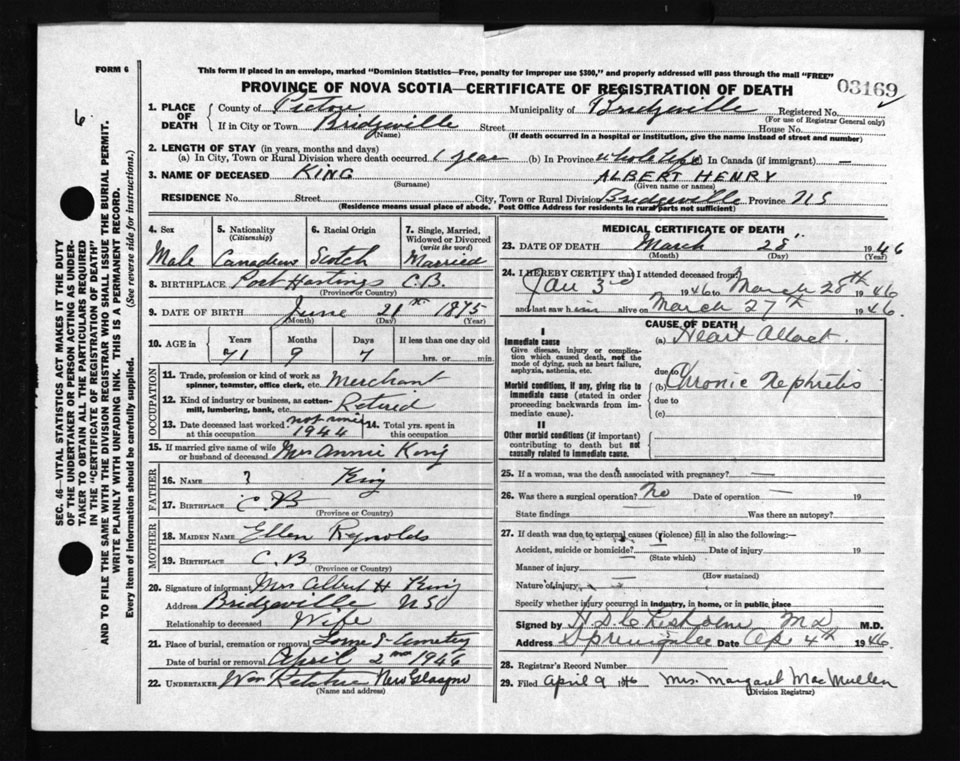 FORM 6
This form if placed in an envelope, marked "Dominion Statistics—Free, penalty for improper use $300," and properly addressed will pass through the mail "FREE"
PROVINCE OF NOVA SCOTIA—CERTIFICATE OF REGISTRATION OF DEATH
03169
1. PLACE OF DEATH
County of Pictou Municipality of Bridgeville Registered No.
(For use of Registrar General only)
If in City or Town Bridgeville Street House No.
(Name) (If death occurred in a hospital or institution, give the name instead of street and number)
2. LENGTH OF STAY (in years, months and days)
(a) In City, Town or Rural Division where death occurred 1 year (b) In Province whole life (c) In Canada (if immigrant) —
3. NAME OF DECEASED KING ALBERT HENRY
(Surname) (Given name or names)
RESIDENCE No. Street City, Town or Bridgeville Province NS
(Residence means usual place of abode. Post Office Address for residents in rural parts not sufficient)
4. Sex
Male
5. Nationality
(Citizenship)
Canadian
6. Racial Origin
Scotch
7. Single, Married, Widowed or Divorced
(write the word)
Married
8. BIRTHPLACE Port Hastings C.B.
(Province or Country)
9. DATE OF BIRTH June 21 1875
(Month) (Day) (Year)
10. AGE in Years Months Days If less than one day old
71 9 7 hrs. or min.
OCCUPATION
11. Trade, profession or kind of work as spinner, teamster, office clerk, etc. Merchant
12. Kind of industry or business, as cotton-mill, lumbering, bank, etc. Retired
13. Date deceased last worked at this occupation 1944
14. Total yrs. spent in this occupation
15. If married give name of wife or husband of deceased Mrs Annie King
FATHER
16. NAME ? King
17. BIRTHPLACE C.B
(Province or Country)
MOTHER
18. MAIDEN NAME Ellen Reynolds
19. BIRTHPLACE C.B
(Province or Country)
20. Signature of informant Mrs Albert H King
Address Bridgeville NS
Relationship to deceased Wife
21. Place of burial, cremation or removal Cemetry
Date of burial or removal April 2 1946
22. UNDERTAKER Wm Ritchie New Glasgow
(Name and address)
MEDICAL CERTIFICATE OF DEATH
23. DATE OF DEATH March 28 1946
(Month) (Day) (Year)
24. I HEREBY CERTIFY that I attended deceased from
Jan 3rd 1946 to March 28th 1946
and last saw him alive on March 27th 1946
CAUSE OF DEATH
I
Immediate cause
Give disease, injury or complication which caused death, not the mode of dying, such as heart failure, asphyxia, asthenia, etc.
(a) Heart Attack.
due to
Morbid conditions, if any, giving rise to immediate cause (stated in order proceeding backwards from immediate cause).
(b) Chronic Nephritis
due to
(c)
II
Other morbid conditions (if important) contributing to death but not causally related to immediate cause.
25. If a woman, was the death associated with pregnancy? —
26. Was there a surgical operation? No Date of operation — 19
State findings Was there an autopsy?
27. If death was due to external causes (violence) fill in also the following:—
Accident, suicide or homicide? Date of injury 19
(State which)
Manner of injury
(How sustained)
Nature of injury
Specify whether injury occurred in industry, in home, or in public place
Signed by H D Chisholm MD M.D.
Address Springville Date Ap 4th 1946
28. Registrar's Record Number
29. Filed April 9 1946 Mrs. Margaret MacMullen
(Division Registrar)
6
SEC. 46—VITAL STATISTICS ACT MAKES IT THE DUTY
OF THE UNDERTAKER OR PERSON ACTING AS UNDER-
TAKER TO OBTAIN ALL THE PARTICULARS REQUIRED
IN THE "CERTIFICATE OF REGISTRATION OF DEATH"
AND TO FILE THE SAME WITH THE DIVISION REGISTRAR WHO SHALL ISSUE THE BURIAL PERMIT.
WRITE PLAINLY WITH UNFADING INK. THIS IS A PERMANENT RECORD.
Every item of information should be carefully supplied. (See reverse side for instructions.)